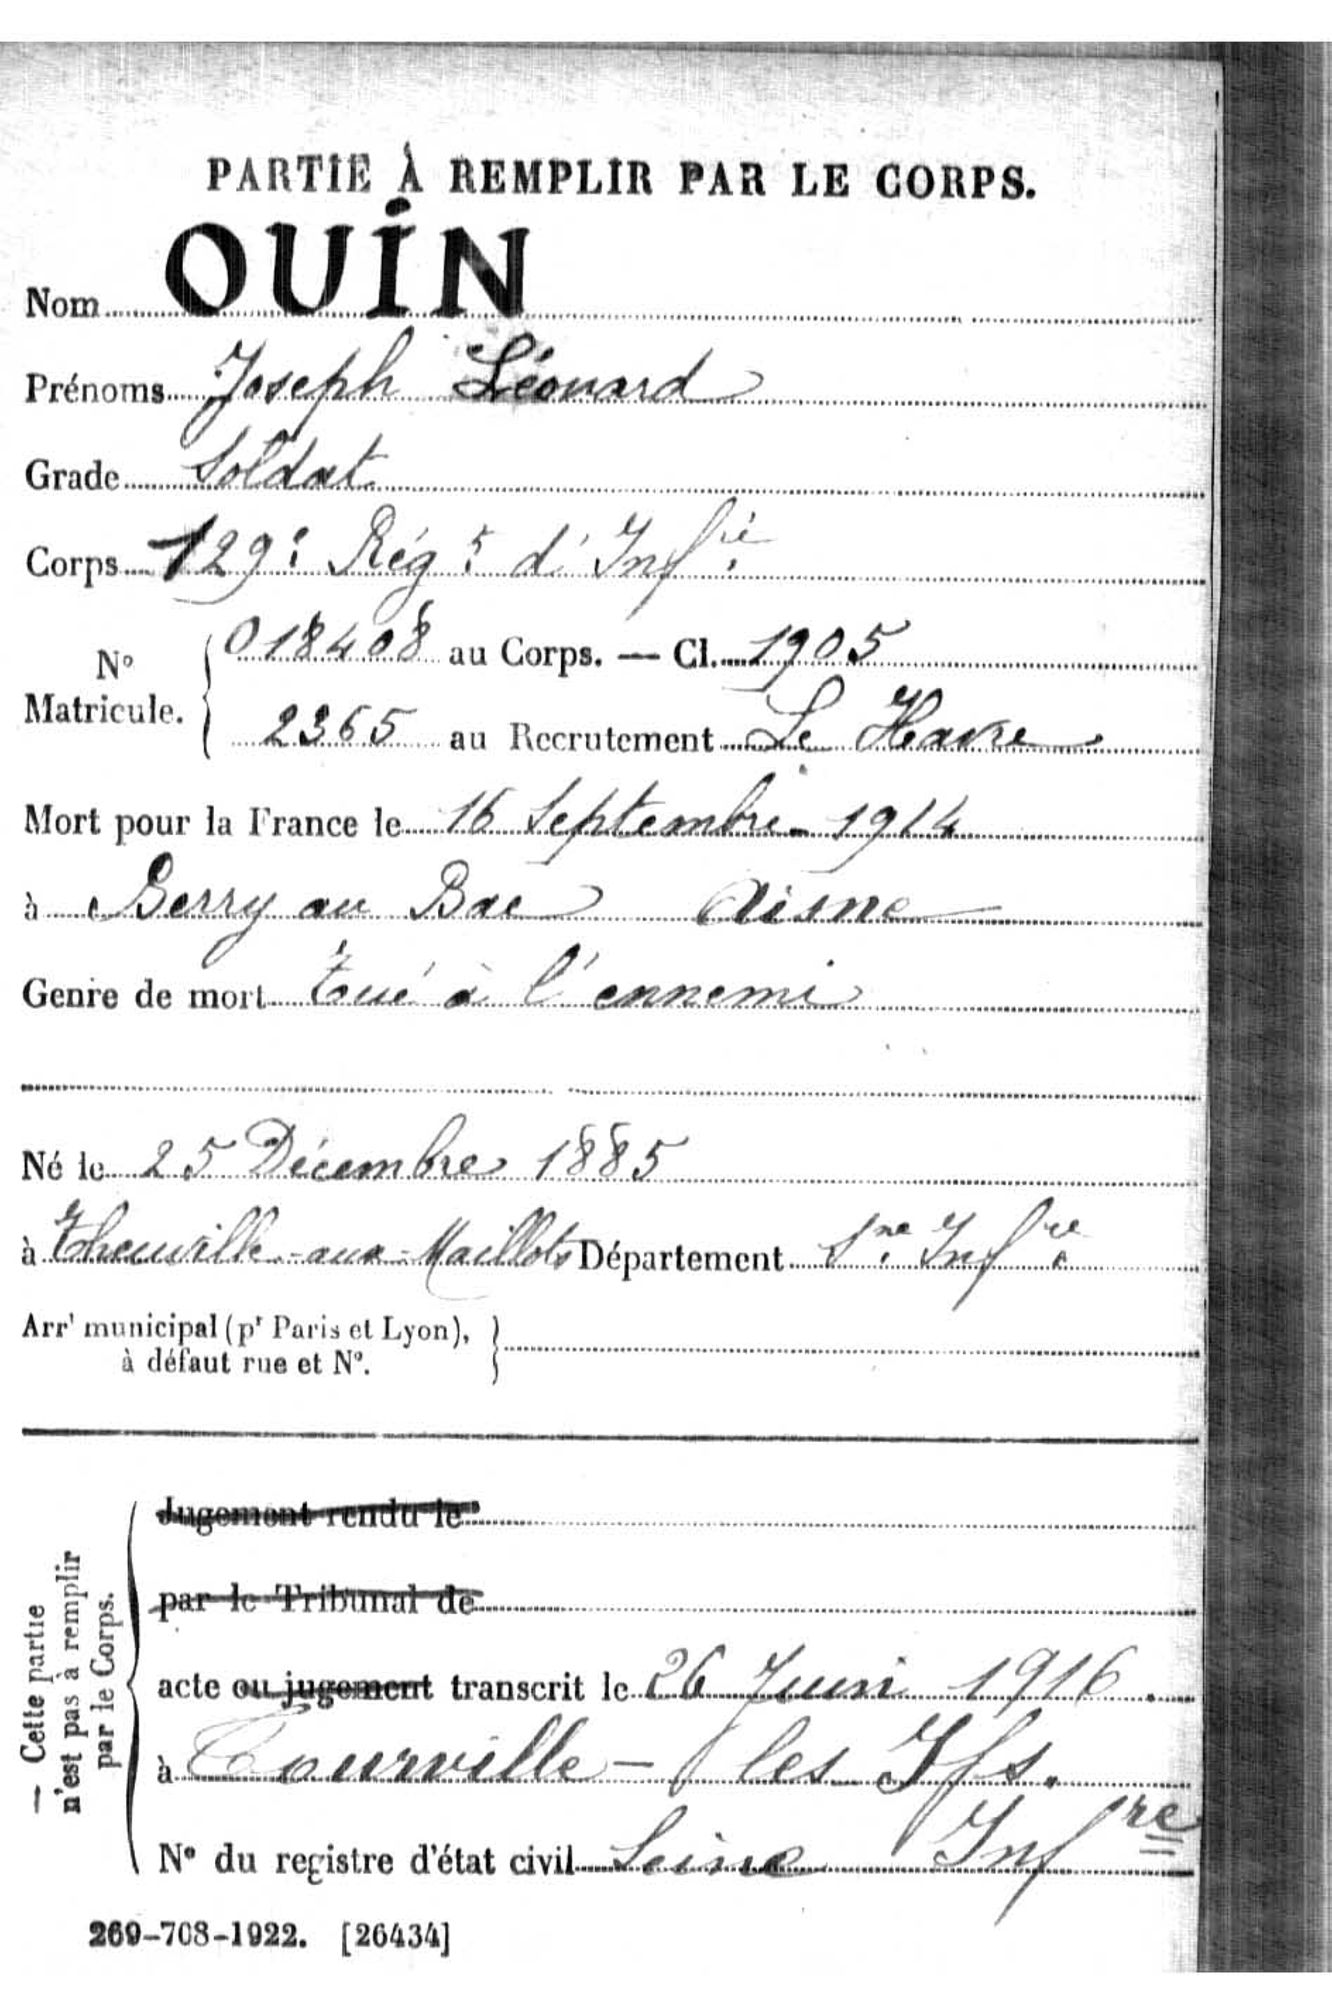 PARTIE À REMPLIR PAR LE CORPS.
Nom OUIN
Prénoms Joseph Léonard
Grade Soldat
Corps 129e Régt d'Infrie
No Matricule. { 018408 au Corps. — Cl. 1905
2365 au Recrutement Le Havre
Mort pour la France le 16 Septembre 1914
à Berry au Bac Aisne
Genre de mort tué à l'ennemi
Né le 25 Décembre 1885
à Theuville-aux-Maillots Département Sne Infre
Arrt municipal (pr Paris et Lyon),
à défaut rue et No.
Jugement rendu le
par le Tribunal de
acte ou jugement transcrit le 26 Juin 1916.
à Tourville-les Ifs.
No du registre d'état civil Seine Infre
— Cette partie
n'est pas à remplir
par le Corps.
269-708-1922. [26434]